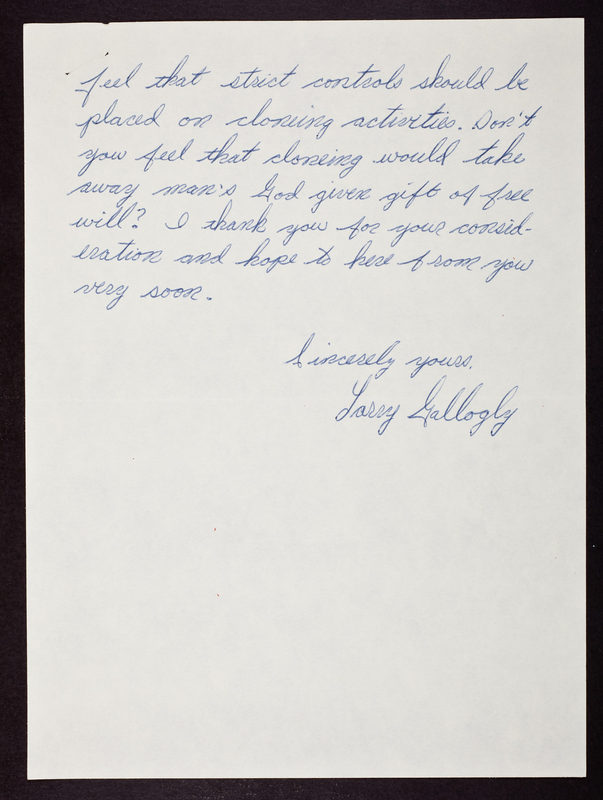 feel that strict controls should be
placed on cloneing activities. Don't
you feel that cloneing would take
away man's God given gift of free
will? I thank you for your consid-
eration and hope to here from you
very soon.
Sincerely yours,
Larry Gallogly